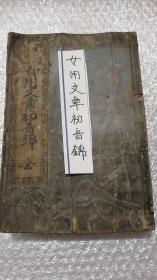 女用文章初音錦
文章初音錦 全